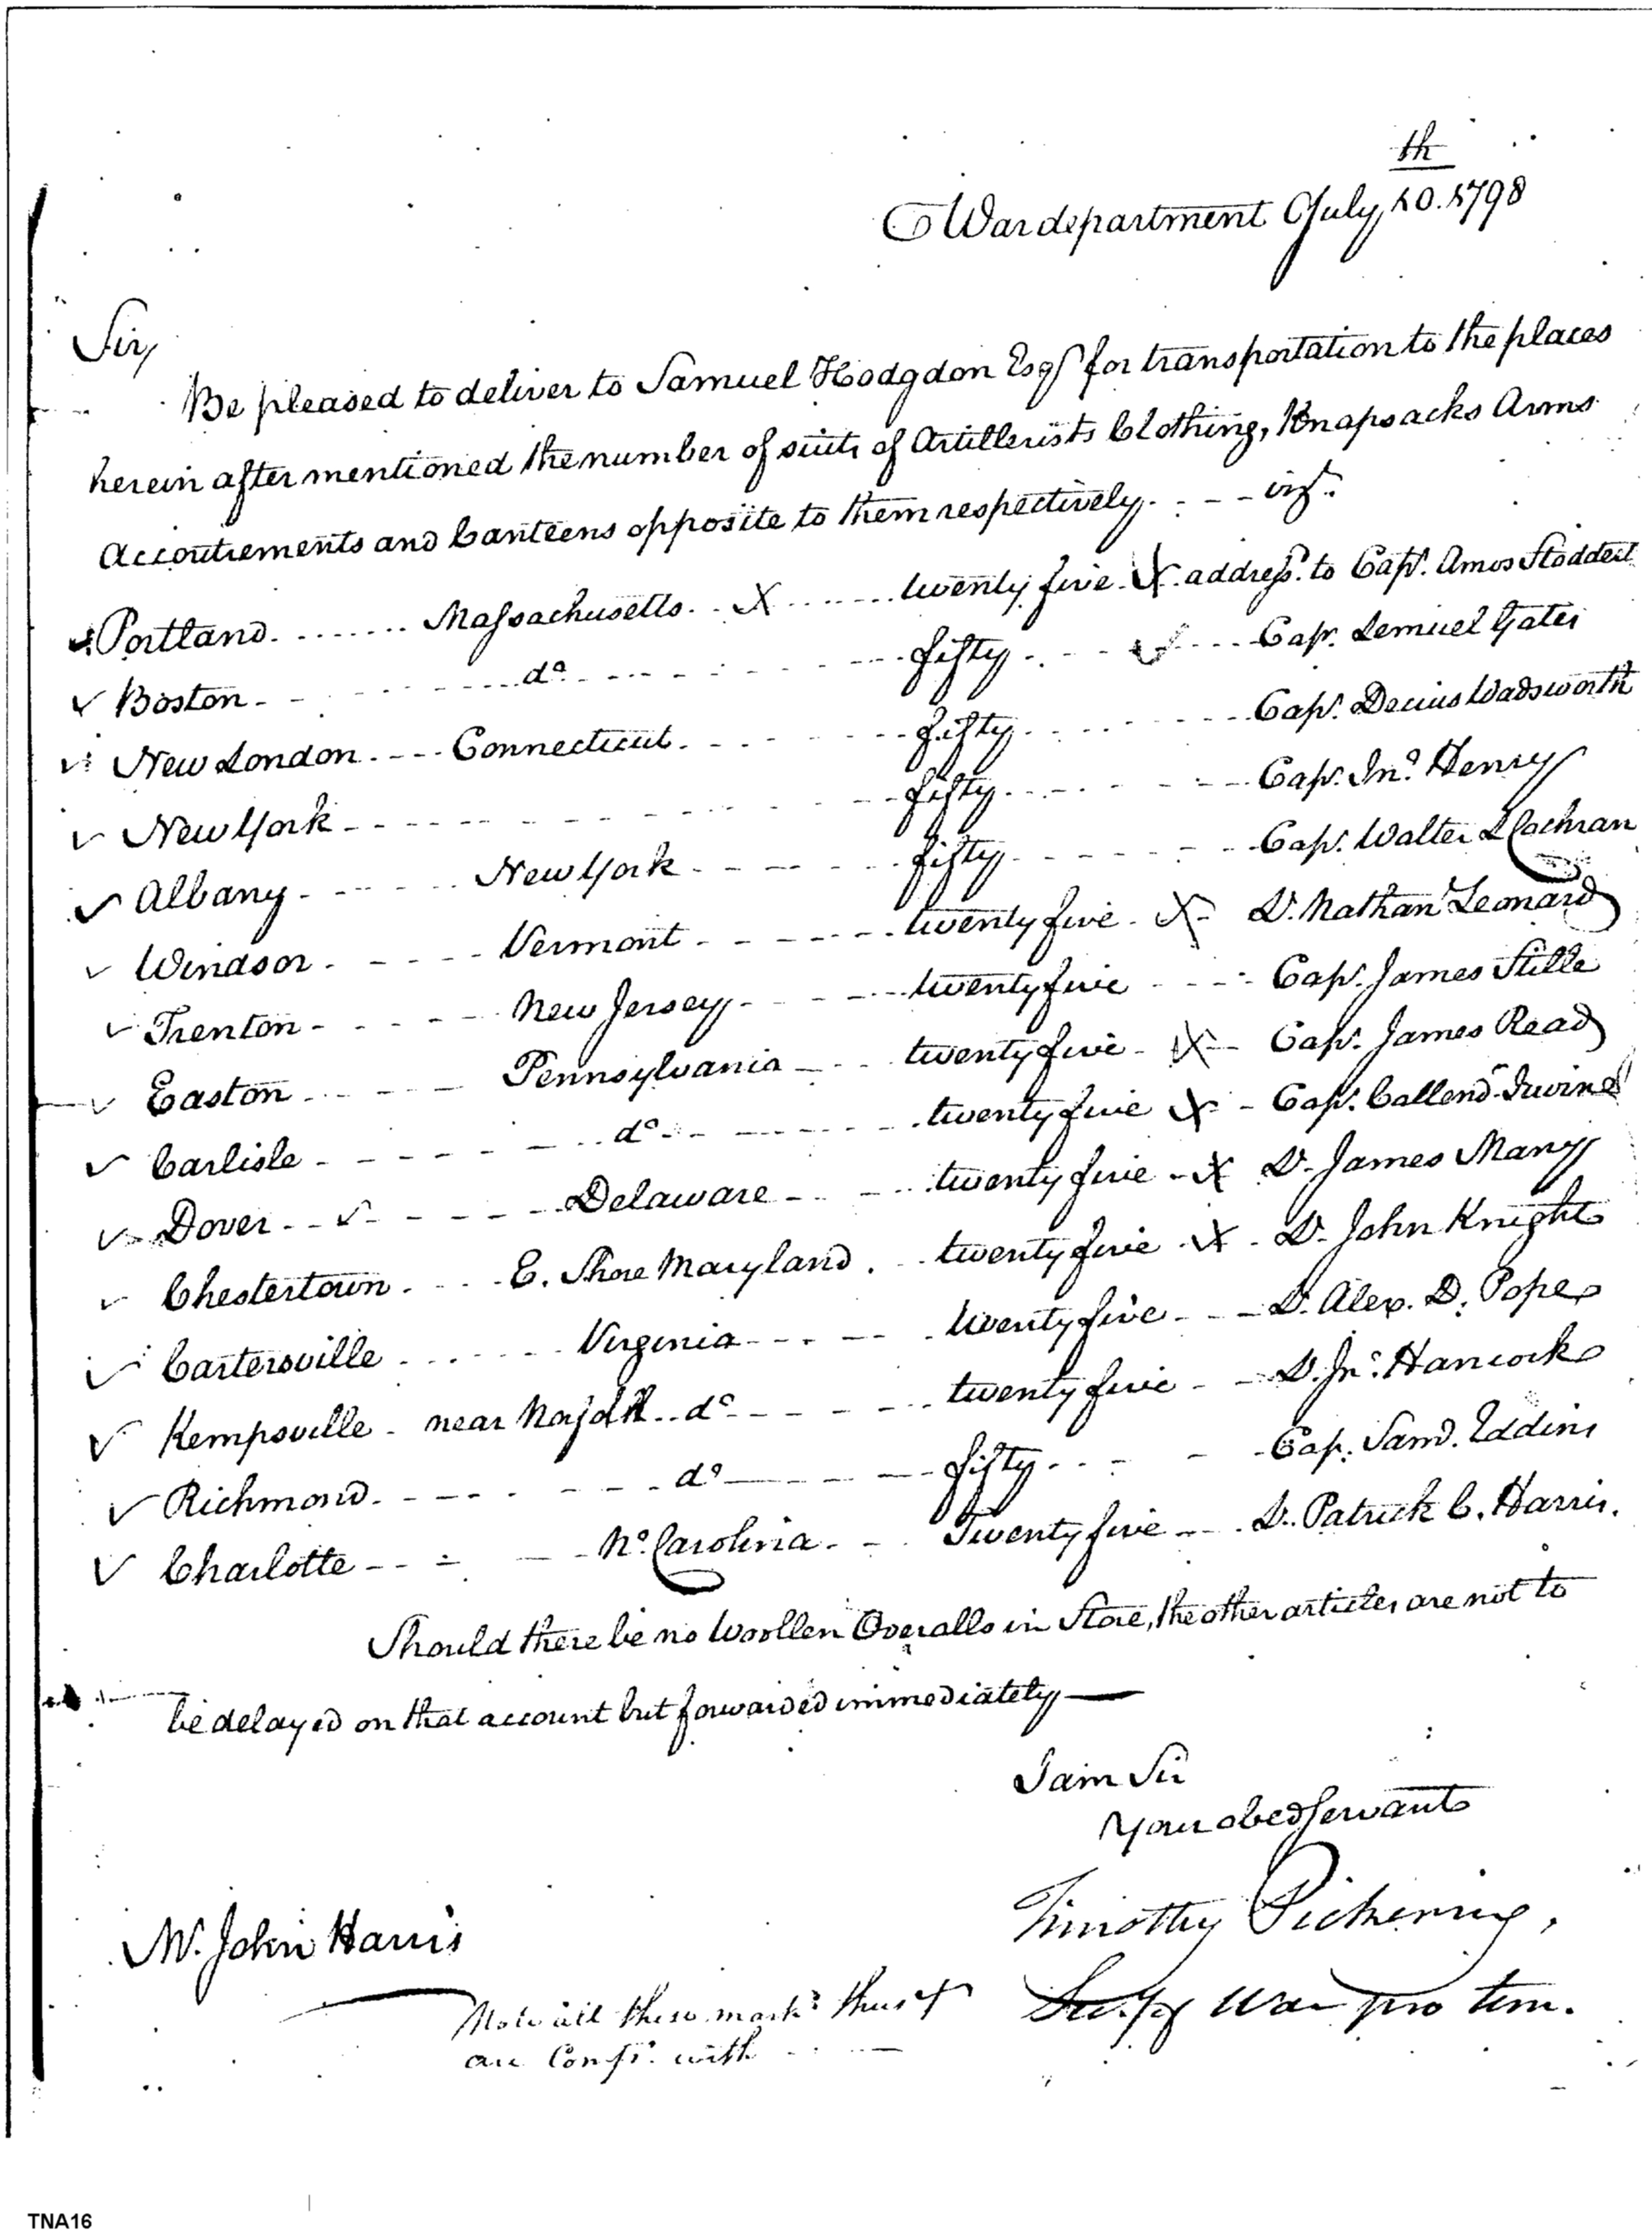 th
War department July 10. 1798
Sir,
Be pleased to deliver to Samuel Hodgdon Esqr for transportation to the places
herein after mentioned the number of suits of Artillerists Clothing, Knapsacks Arms
Accoutrements and Canteens opposite to them respectively. - - - viz.
✓ Portland. ....... Massachusetts. . X ....... twenty five. X. address. to Capt. Amos Stoddert
✓ Boston - - - - - do. - - - - - fifty - - - ✓ - - - Capt. Lemuel Gates
✓ New London. - - - Connecticut. - - - - - fifty - - - - - Capt. Decius Wadsworth
✓ New York - - - - - - - - - fifty - - - - - Capt. Jno. Henry
✓ Albany - - - - - New York - - - - - fifty - - - - - Capt. Walter L Cochran
✓ Windsor. - - - - Vermont - - - - - twenty five - X - Lt. Nathan Leonard
✓ Trenton - - - - - New Jersey - - - - twenty five - - - Capt. James Stille
✓ Easton - - - - - Pennsylvania - - - twenty five - X - Capt. James Read
✓ Carlisle - - - - - do. - - - - - twenty five X - Capt. Callendr. Irvine
✓ Dover - - ✓ - - - - Delaware - - - twenty five - X Lt. James Many
✓ Chestertown. - - - E. Shore Maryland. - twenty five - X - Lt. John Knight
✓ Cartersville - - - - - Virginia - - - - twenty five - - - Lt. Alex. D. Pope
✓ Kempsville - near Norfolk. . do - - - - - twenty five - - Lt. Jno. Hancock
✓ Richmond. - - - - - - do - - - - fifty - - - - Capt. Saml. Eddins
✓ Charlotte - - - - No. Carolina. - - Twenty five - - Lt. Patrick C. Harris.
Should there be no Woollen Overalls in Store, the other articles are not to
be delayed on that account but forwarded immediately —
I am Sir
Your obed Servant
Timothy Pickering,
Mr. John Harris
Secy of War pro tem.
Note all these markd thus X
are Compd. with - - -
TNA16